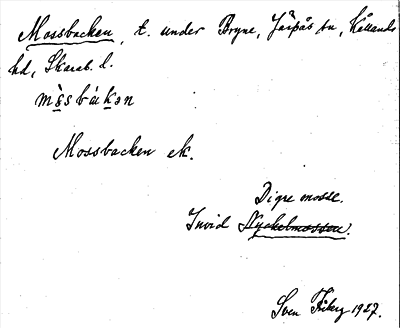 Mossbacken, t. under Bryne, Järpås sn, Kållands
hd, Skarab. l.
mòsbákən
Mossbacken ek.
Digre mosse.
Invid Nyckelmossen.
Sven Friberg 1927.